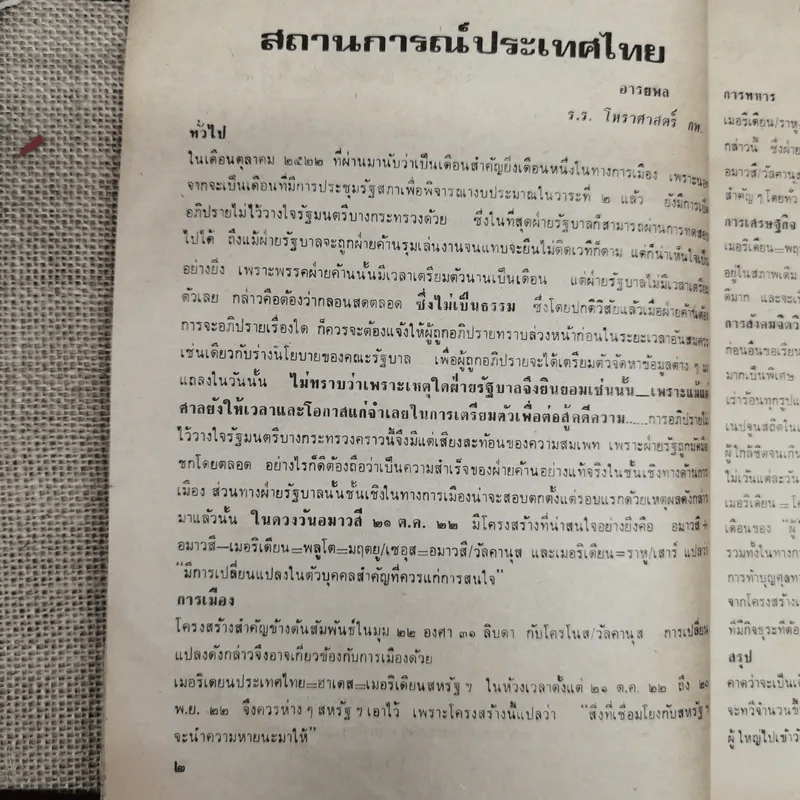 สถานการณ์ประเทศไทย
อารยพล
ร.ร. โหราศาสตร์ กท.
ทั่วไป
ในเดือนตุลาคม ๒๕๒๒ ที่ผ่านมานับว่าเป็นเดือนสำคัญยิ่งเดือนหนึ่งในทางการเมือง เพราะนอก
จากจะเป็นเดือนที่มีการประชุมรัฐสภาเพื่อพิจารณางบประมาณในวาระที่ ๒ แล้ว ยังมีการเปิด
อภิปรายไม่ไว้วางใจรัฐมนตรีบางกระทรวงด้วย ซึ่งในที่สุดฝ่ายรัฐบาลก็สามารถผ่านการทดสอบ
ไปได้ ถึงแม้ฝ่ายรัฐบาลจะถูกฝ่ายค้านรุมเล่นงานจนแทบจะยืนไม่ติดเวทีก็ตาม แต่ก็น่าเห็นใจเป็น
อย่างยิ่ง เพราะพรรคฝ่ายค้านนั้นมีเวลาเตรียมตัวนานเป็นเดือน แต่ฝ่ายรัฐบาลไม่มีเวลาเตรียม
ตัวเลย กล่าวคือต้องว่ากลอนสดตลอด ซึ่งไม่เป็นธรรม ซึ่งโดยปกติวิสัยแล้วเมื่อฝ่ายค้านต้อง
การจะอภิปรายเรื่องใด ก็ควรจะต้องแจ้งให้ผู้ถูกอภิปรายทราบล่วงหน้าก่อนในระยะเวลาอันสมควร
เช่นเดียวกับร่างนโยบายของคณะรัฐบาล เพื่อผู้ถูกอภิปรายจะได้เตรียมตัวจัดหาข้อมูลต่าง ๆ มา
แถลงในวันนั้น ไม่ทราบว่าเพราะเหตุใดฝ่ายรัฐบาลจึงยินยอมเช่นนั้น—เพราะแม้แต่
ศาลยังให้เวลาและโอกาสแก่จำเลยในการเตรียมตัวเพื่อต่อสู้คดีความ......การอภิปรายไม่
ไว้วางใจรัฐมนตรีบางกระทรวงคราวนี้จึงมีแต่เสียงสะท้อนของความสมเพท เพราะฝ่ายรัฐถูกมัดมือ
ชกโดยตลอด อย่างไรก็ดีต้องถือว่าเป็นความสำเร็จของฝ่ายค้านอย่างแท้จริงในชั้นเชิงทางด้านการ
เมือง ส่วนทางฝ่ายรัฐบาลนั้นชั้นเชิงในทางการเมืองน่าจะสอบตกตั้งแต่รอบแรกด้วยเหตุผลดังกล่าว
มาแล้วนั้น ในดวงวันอมาวสี ๒๑ ต.ค. ๒๒ มีโครงสร้างที่น่าสนใจอย่างยิ่งคือ อมาวสี+
อมาวสี—เมอริเดียน=พลูโต=มฤตยู/เซอุส=อมาวสี/วัลคานุส และเมอริเดียน=ราหู/เสาร์ แปลว่า
“มีการเปลี่ยนแปลงในตัวบุคคลสำคัญที่ควรแก่การสนใจ”
การเมือง
โครงสร้างสำคัญข้างต้นสัมพันธ์ในมุม ๒๒ องศา ๓๑ ลิบดา กับโครโนส/วัลคานุส การเปลี่ยน
แปลงดังกล่าวจึงอาจเกี่ยวข้องกับการเมืองด้วย
เมอริเดยนประเทศไทย=ฮาเดส=เมอริเดียนสหรัฐ ฯ ในห้วงเวลาตั้งแต่ ๒๑ ต.ค. ๒๒ ถึง ๒๐
พ.ย. ๒๒ จึงควรห่าง ๆ สหรัฐ ฯ เอาไว้ เพราะโครงสร้างนี้แปลว่า “สิ่งที่เชื่อมโยงกับสหรัฐฯ
จะนำความหายนะมาให้”
๒
การทหาร
เมอริเดียน/ราหู
กล่าวนี้ ซึ่งฝ่าย
อมาวสี/วัลคานุส
สำคัญ ๆ โดยทั่ว
การเศรษฐกิจ
เมอริเดียน=พฤ
อยู่ในสภาพเดิม
ดีมาก และจะเป็
การสังคมจิตวิ
ก่อนอื่นขอเรียน
มากเป็นพิเศษ
เร่าร้อนทุกรูปแ
เนปจูนสถิตในเ
ผู้ใกล้ชิดจนเกิน
ไม่เว้นแต่ละวัน
เมอริเดียน=โค
เดือนของ “ผู้
รวมทั้งในทางกา
การทำบุญกุศลทา
จากโครงสร้างเ
ที่มีกิจธุระที่ต้อ
สรุป
คาดว่าจะเป็นเดื
จะทวีจำนวนขึ้
ผู้ใหญ่ไปเข้าวั